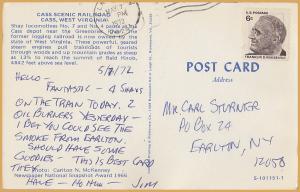 CASS SCENIC RAILROAD
CASS, WEST VIRGINIA
Shay locomotives No. 7 and No. 4 pause at the
Cass depot near the Greenbrier River. The
former logging railroad is now owned by the
state of West Virginia. These powerful geared
steam engines pull trainloads of tourists
through woods and up mountain grades as steep
as 13% to reach the summit of Bald Knob,
4842 feet above sea level.
5/8/72
HELLO -
FANTASTIC - 4 SHAYS
ON THE TRAIN TODAY. 2
OIL BURNERS YESTERDAY -
I BET YOU COULD SEE THE
SMOKE FROM EARLTON.
SHOULD HAVE SOME
GOODIES - THIS BEST CARD
THEY
HAVE - HO HUM - JIM
Photo: Carlton N. McKenney
Newspaper National Snapshot Award 1966
PM
1972
U.S. POSTAGE
6¢
FRANKLIN D. ROOSEVELT
POST CARD
Address
MR. CARL STURNER
PO BOX 24
EARLTON, NY
12058
S-101151-1